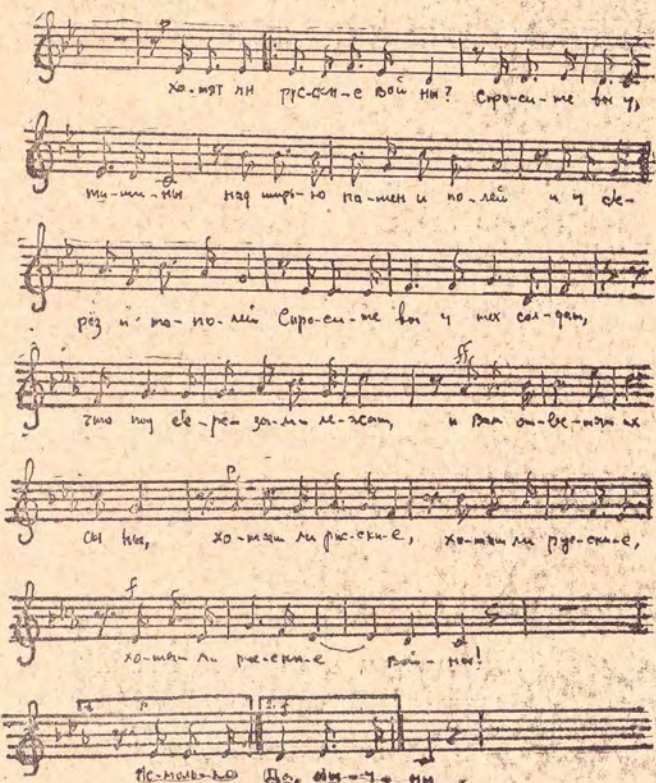 хо-тят ли рус-ски-е вой ны? Спро-си-те вы у,
ти-ши-ны над ширь-ю па-шен и по-лей и у бе-
рёз и то-по-лей Спро-си-те вы у тех сол-дат,
что под бе-ре-за-ми ле-жат, и Вам от-ве-тят их
сы ны, хо-тят ли рус-ски-е, хо-тят ли рус-ски-е,
хо-тят ли рус-ски-е вой-ны!